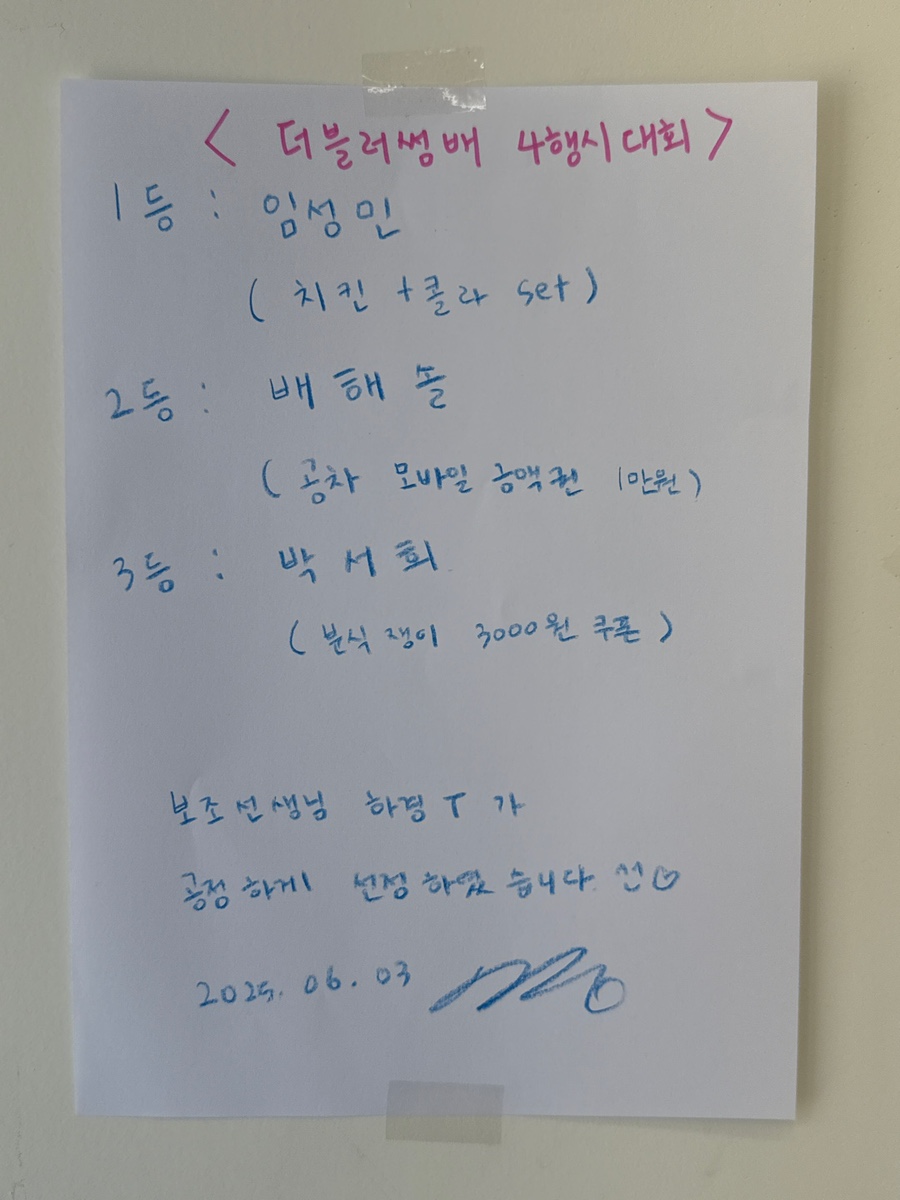 < 더블러썸배 4행시대회 >
1등 : 임성민
( 치킨 + 콜라 set )
2등 : 배해솔
( 공차 모바일 금액권 1만원 )
3등 : 박서희
( 분식쟁이 3000원 쿠폰 )
보조선생님 하경T가
공정하게 선정하였습니다.
2025. 06. 03